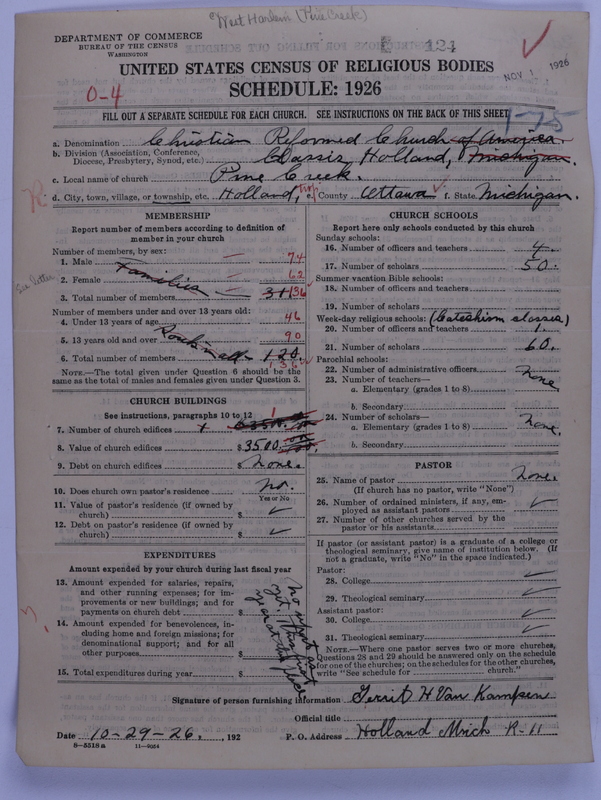 West Harlem (Pine Creek)
DEPARTMENT OF COMMERCE
BUREAU OF THE CENSUS
WASHINGTON
124
NOV 1 1926
UNITED STATES CENSUS OF RELIGIOUS BODIES
SCHEDULE: 1926
0-4
175
FILL OUT A SEPARATE SCHEDULE FOR EACH CHURCH. SEE INSTRUCTIONS ON THE BACK OF THIS SHEET
a. Denomination Christian Reformed Church of America
b. Division (Association, Conference, Diocese, Presbytery, Synod, etc.) Classis, Holland, Michigan.
c. Local name of church Pine Creek.
d. City, town, village, or township, etc. Holland, twp e. County Ottawa f. State Michigan.
MEMBERSHIP
Report number of members according to definition of member in your church
Number of members, by sex:
1. Male 74
Families
2. Female 62
See letter
3. Total number of members 31 136
Number of members under and over 13 years old:
4. Under 13 years of age 46
5. 13 years old and over 90
6. Total number of members 120. 136
NOTE.—The total given under Question 6 should be same as the total of males and females given under Question 3.
CHURCH BUILDINGS
See instructions, paragraphs 10 to 12
7. Number of church edifices 1
8. Value of church edifices $3500.
9. Debt on church edifices $ None.
10. Does church own pastor's residence No.
Yes or No
11. Value of pastor's residence (if owned by church) $
12. Debt on pastor's residence (if owned by church) $
EXPENDITURES
Amount expended by your church during last fiscal year
13. Amount expended for salaries, repairs, and other running expenses; for improvements or new buildings; and for payments on church debt $
14. Amount expended for benevolences, including home and foreign missions; for denominational support; and for all other purposes $
15. Total expenditures during year $
No report yet, first year
CHURCH SCHOOLS
Report here only schools conducted by this church
Sunday schools:
16. Number of officers and teachers 4.
17. Number of scholars 50.
Summer vacation Bible schools:
18. Number of officers and teachers
19. Number of scholars
Week-day religious schools: (Catechism classes)
20. Number of officers and teachers 1.
21. Number of scholars 60.
Parochial schools:
22. Number of administrative officers None
23. Number of teachers—
a. Elementary (grades 1 to 8)
b. Secondary
24. Number of scholars—
a. Elementary (grades 1 to 8) None.
b. Secondary
PASTOR
25. Name of pastor None.
(If church has no pastor, write "None")
26. Number of ordained ministers, if any, employed as assistant pastors
27. Number of other churches served by the pastor or his assistants
If pastor (or assistant pastor) is a graduate of a college or theological seminary, give name of institution below. (If not a graduate, write "No" in the space indicated.)
Pastor:
28. College
29. Theological seminary
Assistant pastor:
30. College
31. Theological seminary
NOTE.—Where one pastor serves two or more churches, Questions 28 and 29 should be answered only on the schedule for one of the churches; on the schedules for the other churches, write "See schedule for church."
Signature of person furnishing information Gerrit H Van Kampen
Official title
Date 10-29-26., 192 P. O. Address Holland Mich R-11
8—5518a 11—9054